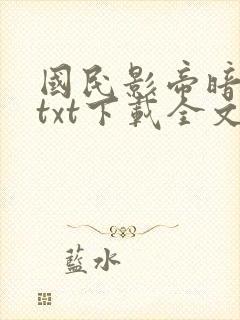 國民影帝暗
txt下載全文
藍水